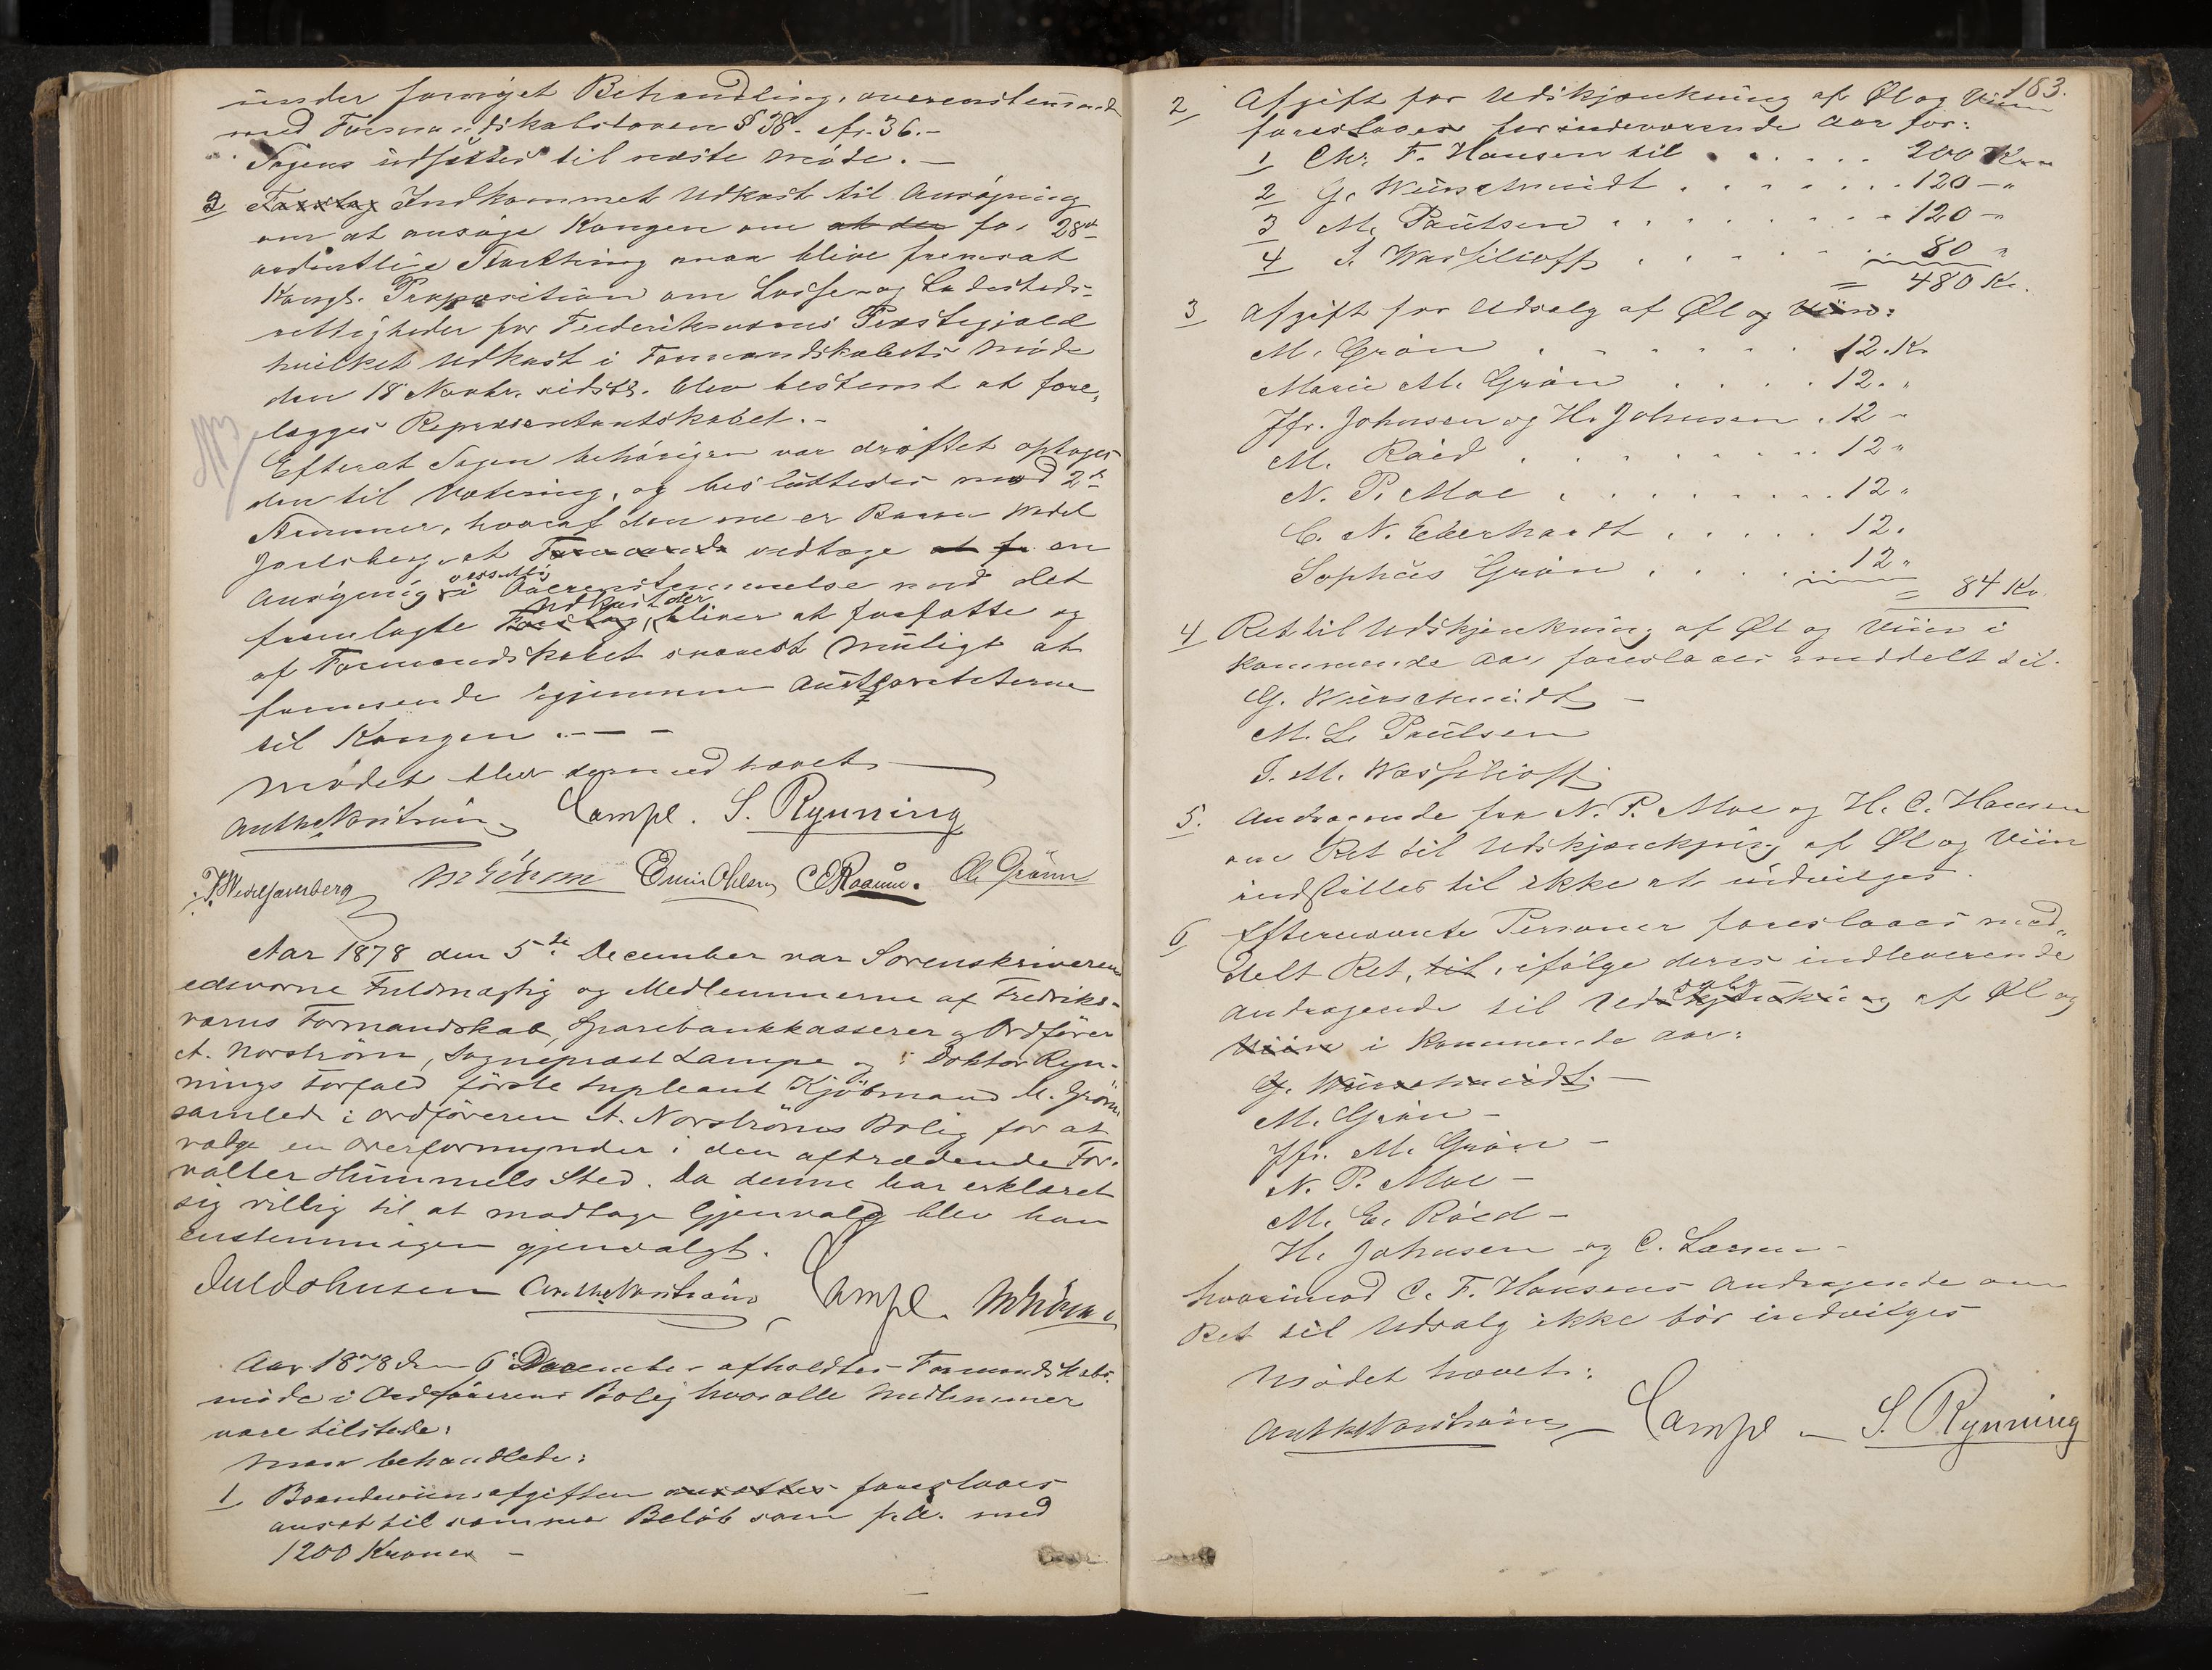 under fornyet Behandling, overenstemmende
med Formandskabsloven § 38. cfr. 36.-
Sagens udsættes til næste møde. -
2 Forslag Indkommet Udkast til Ansøgning
om at ansøge Kongen om at der for 28de
ordentlige Storthing maa blive fremsat
Kongl. Proposition om Losse- og Ladesteds-
rettigheder for Frederiksværns Præstegjæld
hvilket Udkast i Formandskabets møde
den 18 Novbr. sidstl. blev bestemt at fore-
lægges Repræsentantskabet. -
Efterat Sagen behørigen var drøftet optoges
den til Votering, og besluttedes mod 2de
Stemmer, hvoraf den ene er Baron Wedel
Jarlsberg, at Formands vedtage at fr en
Ansøgning i Overenstemmelse med det
Udkast der
fremlagte Forslag, bliver at forfatte og
af Formandskabet snarest muligt at
fremsende igjennem Autoriteterne
til Kongen. - - -
Mødet blev dermed hævet
Lampe. S. Rynning
Emil Olsen
Aar 1878 den 5te December var Sorenskriverens
edsvorne Fuldmægtig og Medlemmerne af Fredriks-
værns Formandskab, Sparebankkasserer og Ordfører
A. Norström, Sogneprast Lampe og i Doktor Ryn-
nings Forfald förste Supleant Kjöbmand M. Grøn
samlede i Ordföreren A. Norströms Bolig for at
vælge en Overformynder i den aftrædende For-
valter Hümmels Sted. Da denne har erklæret
sig villig til at modtage Gjenvalg blev han
enstemmigen gjenvalgt.
Jul Johnsen Lampe.
Aar 1878 den 6 December afholdtes Formandskabs-
møde i Ordførerens Bolig hvor alle Medlemmer
vare tilstede:
Man behandlede:
1 Brændeviinsafgiften ansættes foreslaaes
ansat til samme Beløb som f.A. med
1200 Kroner -
183.
2 Afgift for Udskjænkning af Øl og Viin
foreslaaes for indeværende Aar for:
1 Chr. F. Hansen til . . . . . 200 Kr.
2 G. Würschmidt . . . . . . . 120 - "
3 M. Paulsen . . . . . . . 120 - "
4 J. Wassilioff . . . . . 80 "
= 480 Kr.
3 Afgift for Udsalg af Øl og Viin:
M. Grøn . . . . . . 12. Kr
Marie M. Grøn . . . . 12. "
Jfr. Johnsen og H. Johnsen . 12 -
M. Røed . . . . . . . . 12 "
N. P. Moe . . . . . . . . 12 "
C. N. Eberhardt . . . . . 12.
Sophus Grøn . . . . 12 "
= 84 Kr.
4 Ret til Udskjænkning af Øl og Viin i
kommende Aar foreslaaes meddelt til.
G. Würschmidt -
M. L. Paulsen
J. M. Wassilioff
5. Andragende fra N. P. Moe og H. C. Hansen
om Ret til Udskjænkning af Øl og Viin
indstilles til ikke at indvilges.
6 Efternævnte Personer foreslaaes med-
delt Ret, til, ifølge deres indleverende
salg
Andragende til Udskjænkning af Øl og
Viin i kommende Aar:
G. Würschmidt -
M. Grøn -
Jfr. M. Grøn -
N. P. Moe -
M. E. Røed -
H. Johnsen og C. Larsen -
hvorimod C. F. Hansens Andragende om
Ret til Udsalg ikke bør indvilges
Mødet hævet:
Lampe - S. Rynning